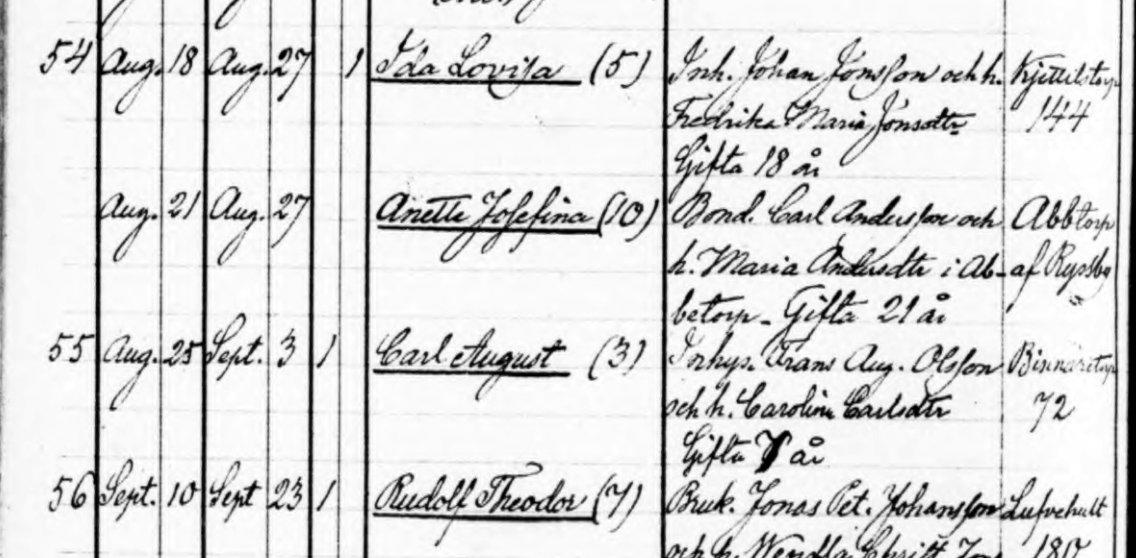 54 Aug. 18 Aug. 27 1 Ida Lovisa (5) Inh. Johan Jonsson och h. Kjettilstorp
Fredrika Maria Jonsdtr 144
Gifta 18 år
Aug. 21 Aug. 27 Anette Josefina (10) Bond. Carl Andersson och Abbtorp
h. Maria Andersdtr i Ab- af Ryssby
betorp - Gifta 21 år
55 Aug. 25 Sept. 3 1 Carl August (3) Inhys. Frans Aug. Olsson
och h. Carolina Carlsdtr 72
Gifta år
56 Sept. 10 Sept 23 1 Rudolf Theodor (7) Bruk. Jonas Pet. Johansson Lufvehult
och h. Wendla